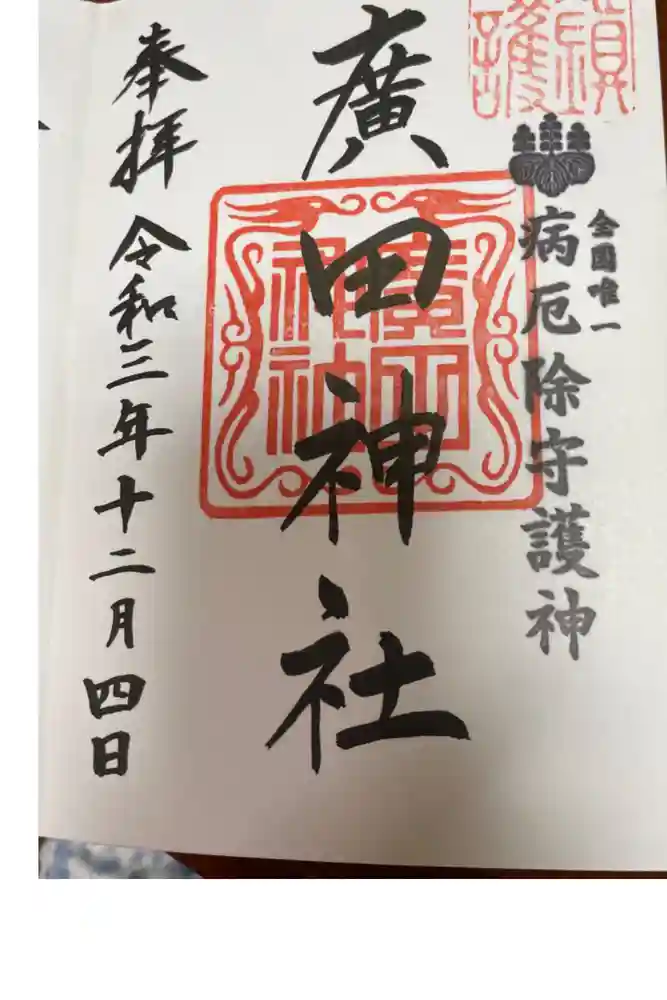 鎭護
全国唯一
病厄除守護神
廣田神社
廣田神社
奉拝
令和三年十二月四日